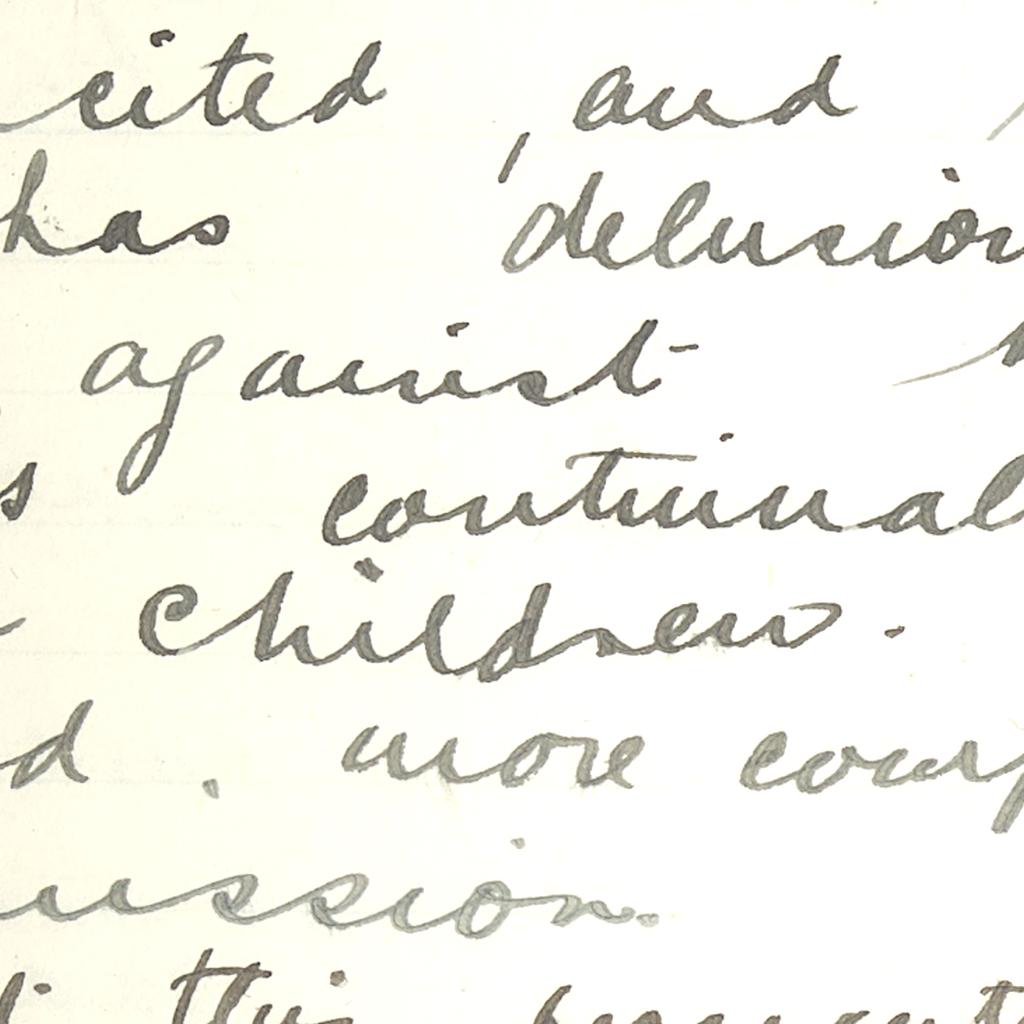 cited, and
has delusion
against
s continual
children.
d. more comp
ission.
this